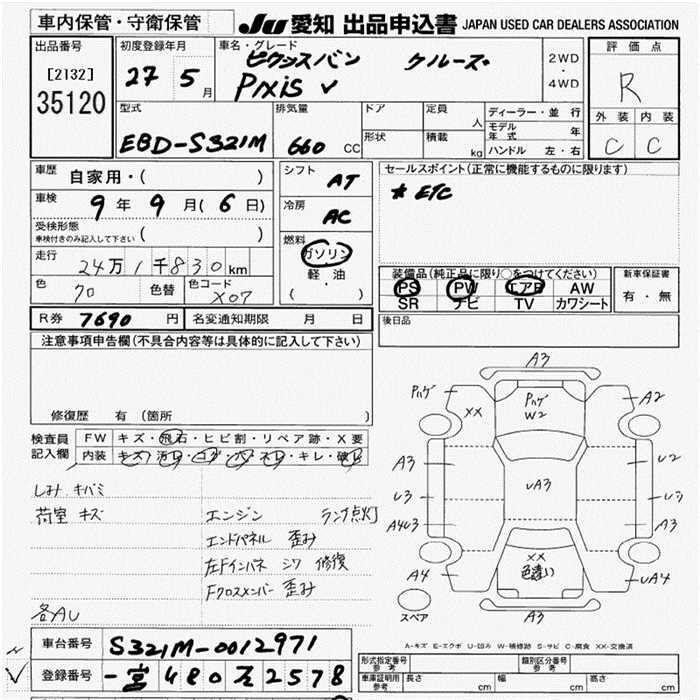 車内保管・守衛保管
JU 愛知 出品申込書 JAPAN USED CAR DEALERS ASSOCIATION
出品番号
[2132]
35120
初度登録年月
27 5月
車名・グレード
ピクシスバン クルーズ
PIXIS
2WD
・
4WD
評価点
R
外装 内装
C C
型式
EBD-S321M
排気量
660 CC
ドア
形状
定員 人
積載 kg
ディーラー・並行
モデル年式 年
ハンドル 左・右
車歴 自家用・( )
車検 9年9月(6日)
受検形態
車検付きのみ記入して下さい ( )
走行 24万1千830km
色 クロ 色替 色コード X07
シフト AT
冷房 AC
燃料
ガソリン
軽・油
( )
セールスポイント(正常に機能するものに限ります)
* ETC
装備品(純正品に限り○をつけてください)
PS PW エアB AW
SR ナビ TV カワシート
新車保証書
有・無
R券 7690円 名変通知期限 月 日
後日品
注意事項申告欄(不具合内容等は具体的に記入して下さい)
修復歴 有(箇所 )
検査員記入欄
FW キズ・飛石・ヒビ割・リペア跡・X要
内装 キズ・汚レ・コゲ・穴・スレ・キレ・破レ
しみ キバミ
荷室 キズ
エンジン ランプ点灯
エンドパネル 歪み
左Fインパネ シワ 修復
Fクロスメンバー 歪み
各AU
A3
Pハゲ
XX
Pハゲ
W2
A2
A3
U2
U3
UA3
U3
A4U3
A3
A4
XX
色違い
UA4
スペア
A3
A-キズ E-エクボ U-凹み W-補修跡 S-サビ C-腐食 XX-交換済
車台番号 S321M-0012971
登録番号 一宮480え2578
形式指定番号
参考
類別区分番号
参考
車庫証明用
参考
長さ cm 幅 cm 高さ cm